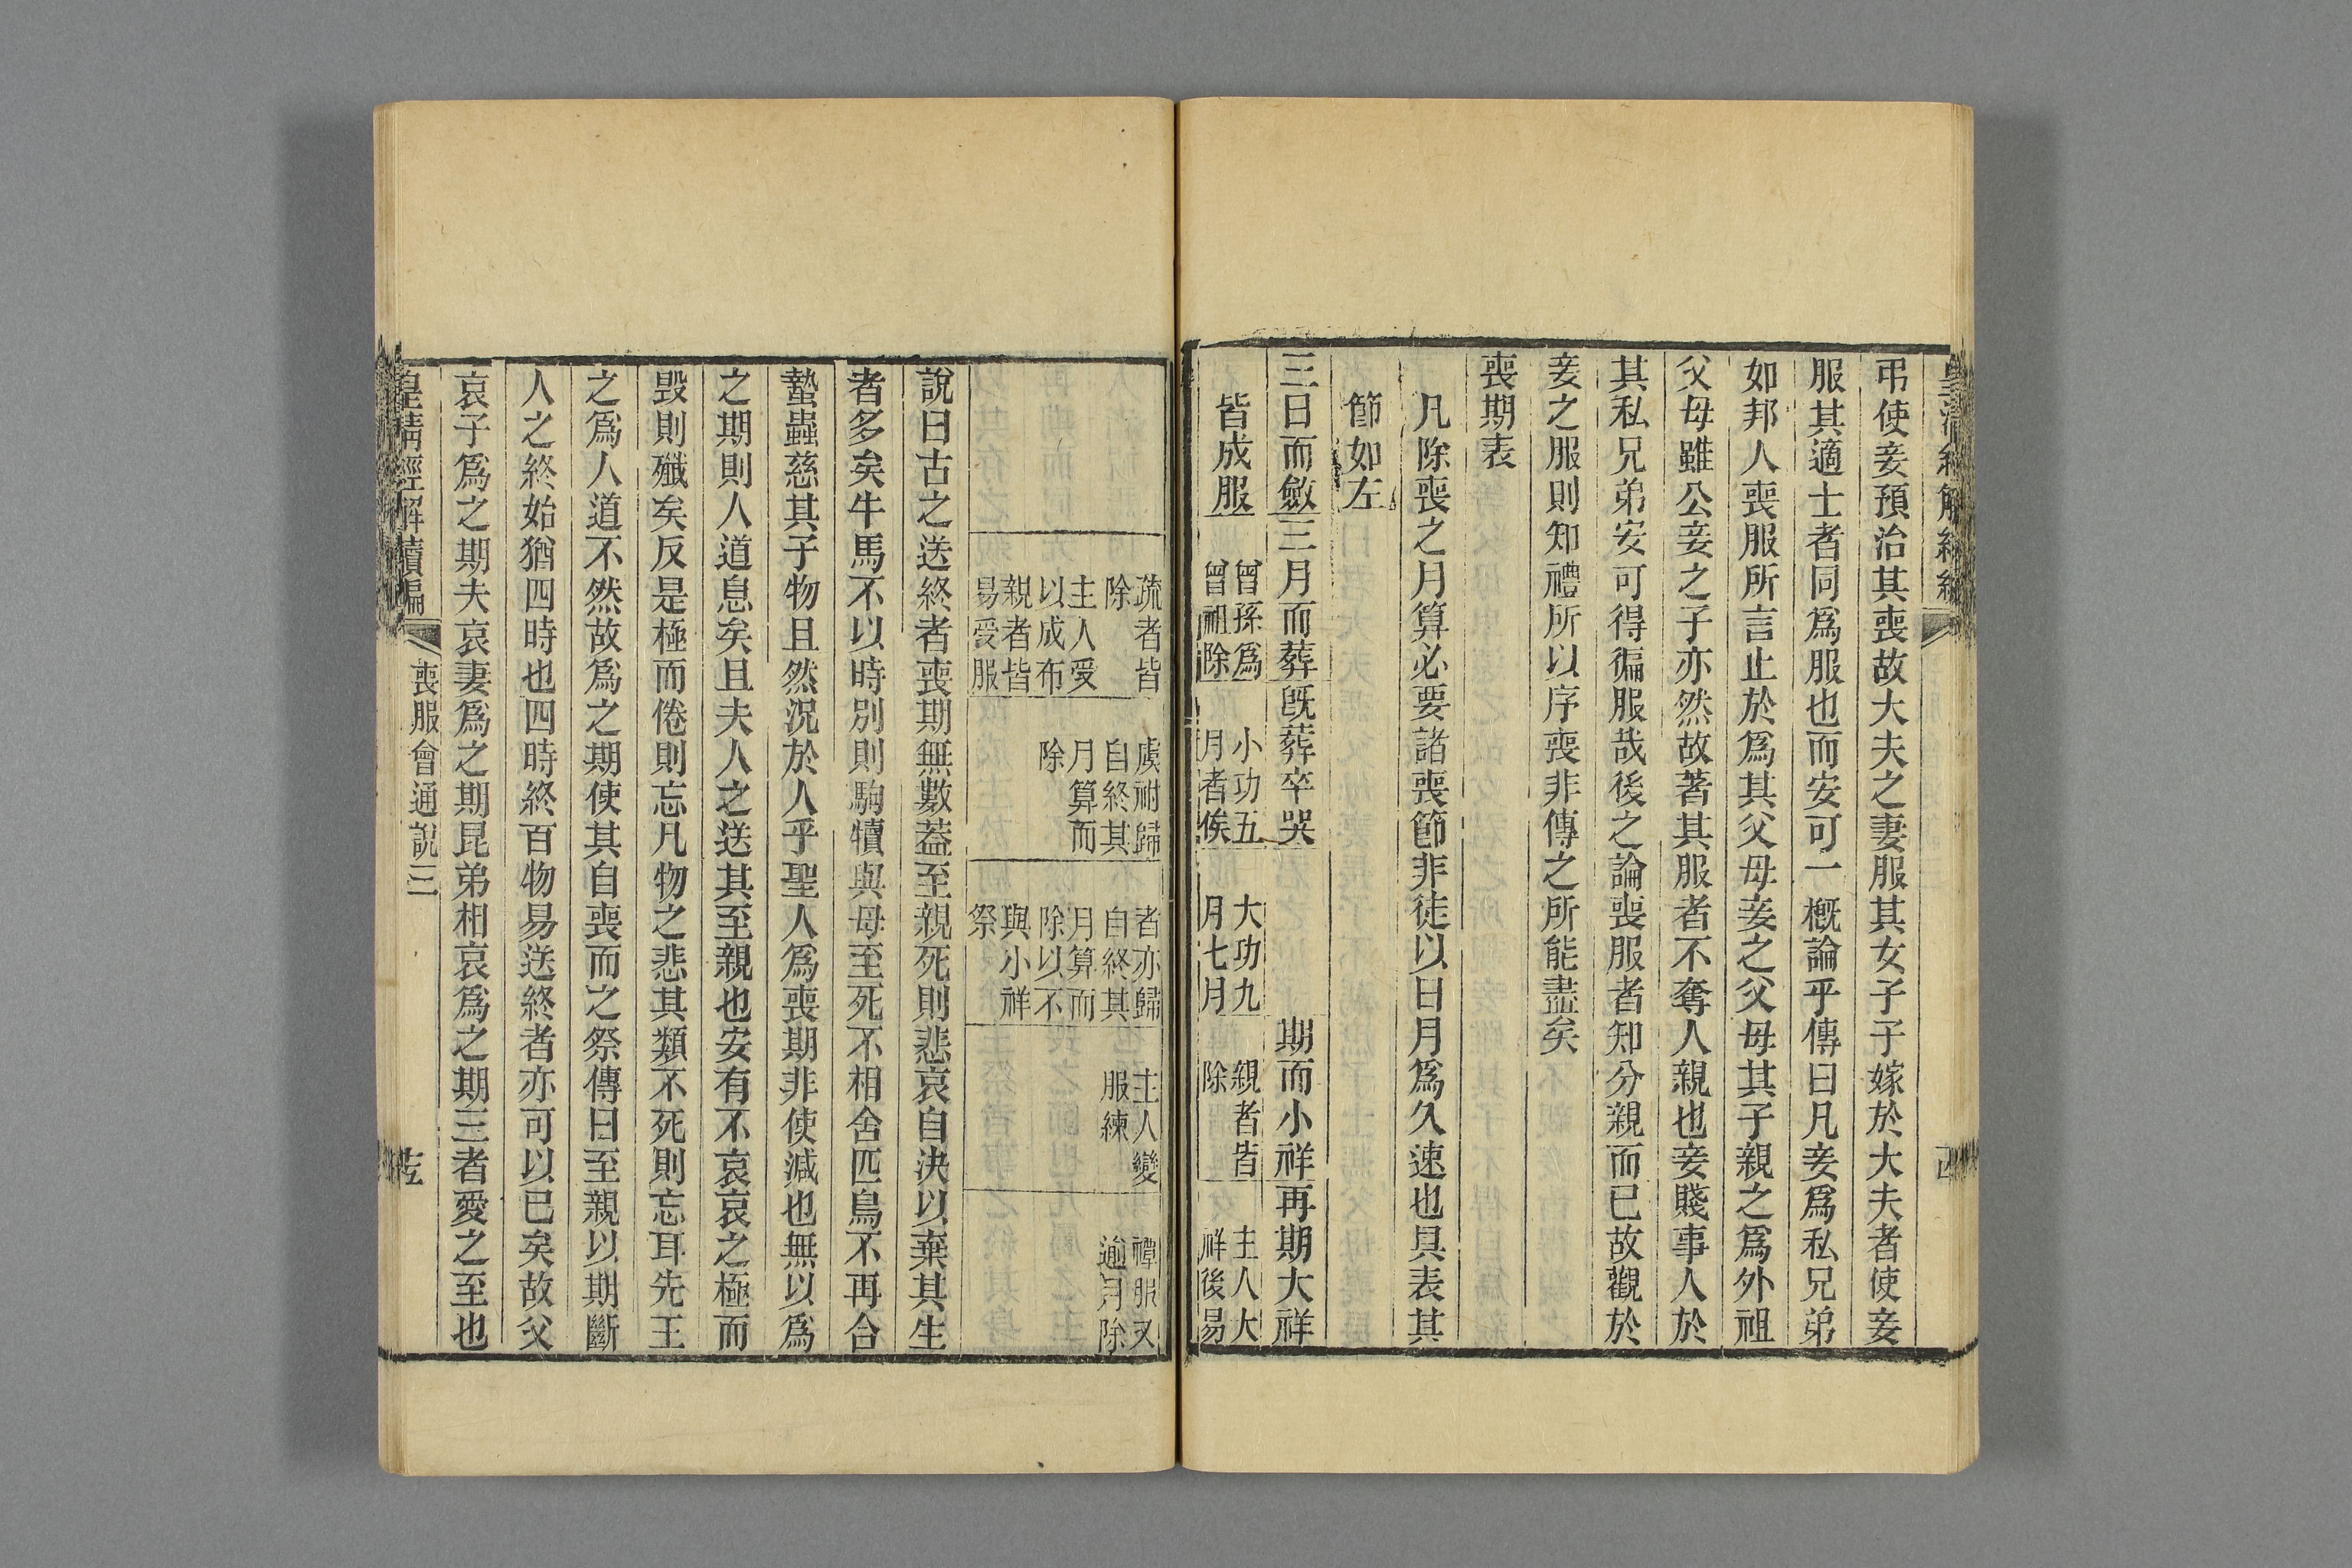 弔使妾預治其喪故大夫之妻服其女子子嫁於大夫者使妾
服其適士者同爲服也而安可一概論乎傳曰凡妾爲私兄弟
如邦人喪服所言止於爲其父母妾之父母其子親之爲外祖
父母雖公妾之子亦然故著其服者不奪人親也妾賤事人於
其私兄弟安可得徧服哉後之論喪服者知分親而已故觀於
妾之服則知禮所以序喪非傳之所能盡矣
喪期表
凡除喪之月算必要諸喪節非徒以日月爲久速也具表其
節如左
三日而斂
三月而葬
既葬卒哭
期而小祥
再期大祥
皆成服
曾孫爲
曾祖除
小功五
月者俟
大功九
月七月
親者皆
除
主人大
祥後易
疏者皆
除
主人受
以成布
親者皆
易受服
虞祔歸
自終其
月算而
除
者亦歸
自終其
月算而
除以不
與小祥
祭
主人變
服練
禫服又
逾月除
說曰古之送終者喪期無數葢至親死則悲哀自決以棄其生
者多矣牛馬不以時別則駒犢與母至死不相舍匹鳥不再合
蟄蟲慈其子物且然況於人乎聖人爲喪期非使減也無以爲
之期則人道息矣且夫人之送其至親也安有不哀哀之極而
毀則殲矣反是極而倦則忘凡物之悲其類不死則忘耳先王
之爲人道不然故爲之期使其自喪而之祭傳曰至親以期斷
人之終始猶四時也四時終百物易送終者亦可以已矣故父
哀子爲之期夫哀妻爲之期昆弟相哀爲之期三者愛之至也
皇清經解續編
喪服會通說三